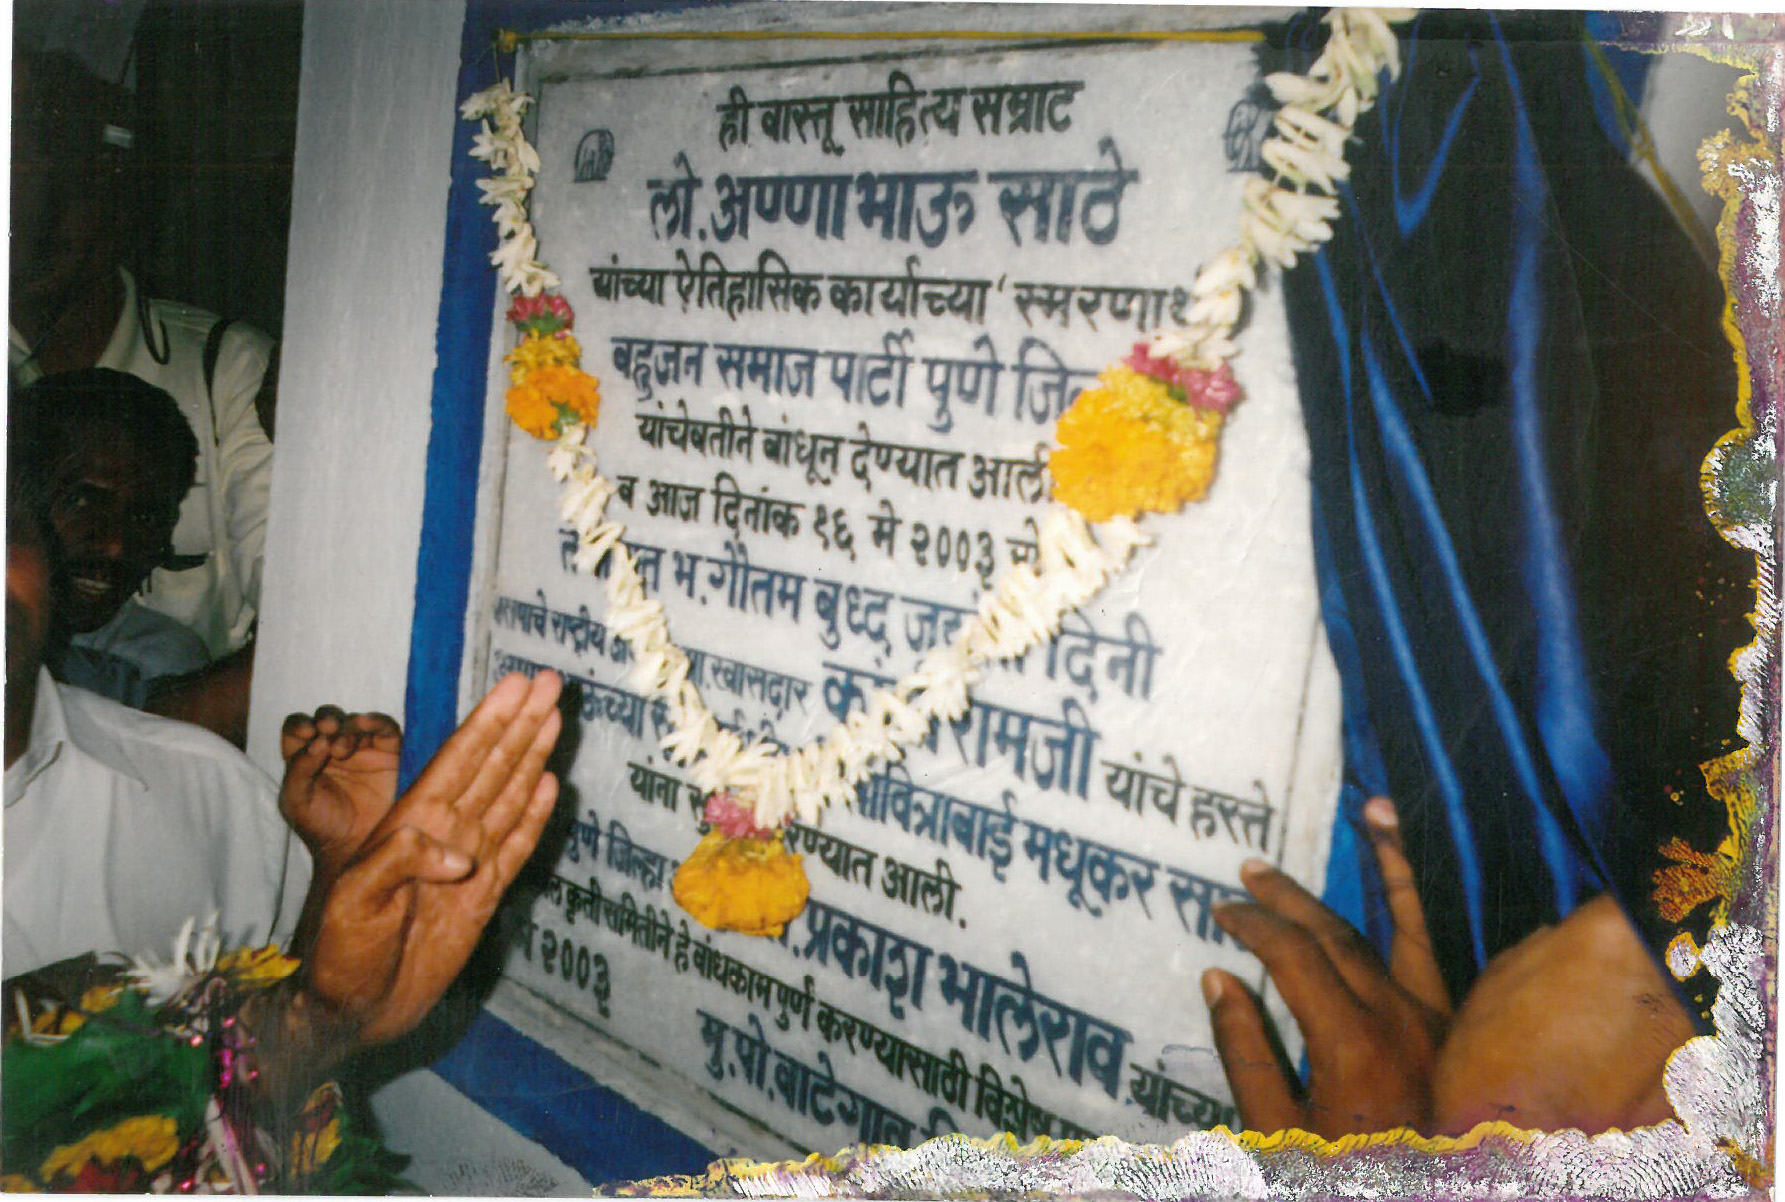 ही वास्तू साहित्य सम्राट
लो. अण्णा भाऊ साठे
यांच्या ऐतिहासिक कार्याच्या ‘ स्मरणा
बहुजन समाज पार्टी पुणे
यांचेवतीने बांधून देण्यात आली
व आज दिनांक १६ मे २००३
भ. गौतम बुध्द दिनी
राष्ट्रीय खासदार रामजी यांचे हस्ते
सावित्राबाई मधूकर
यांना आली.
पुणे जिल्हा प्रकाश भालेराव यांच्या
कृती समितीने हे बांधकाम पुर्ण करण्यासाठी विशेष
मे २००३
मु. पो. वाटेगाव